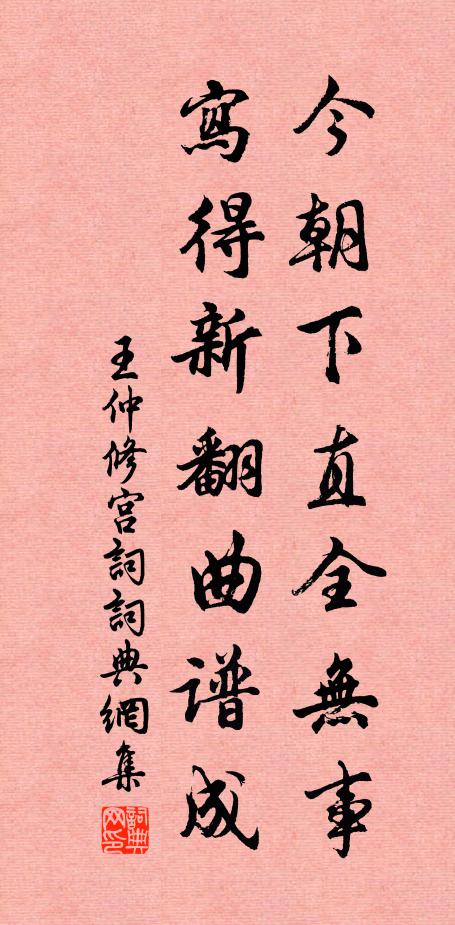 今朝下直全無事
寫得新翻曲譜成
王仲修宮詞詞典網集
詞典网印